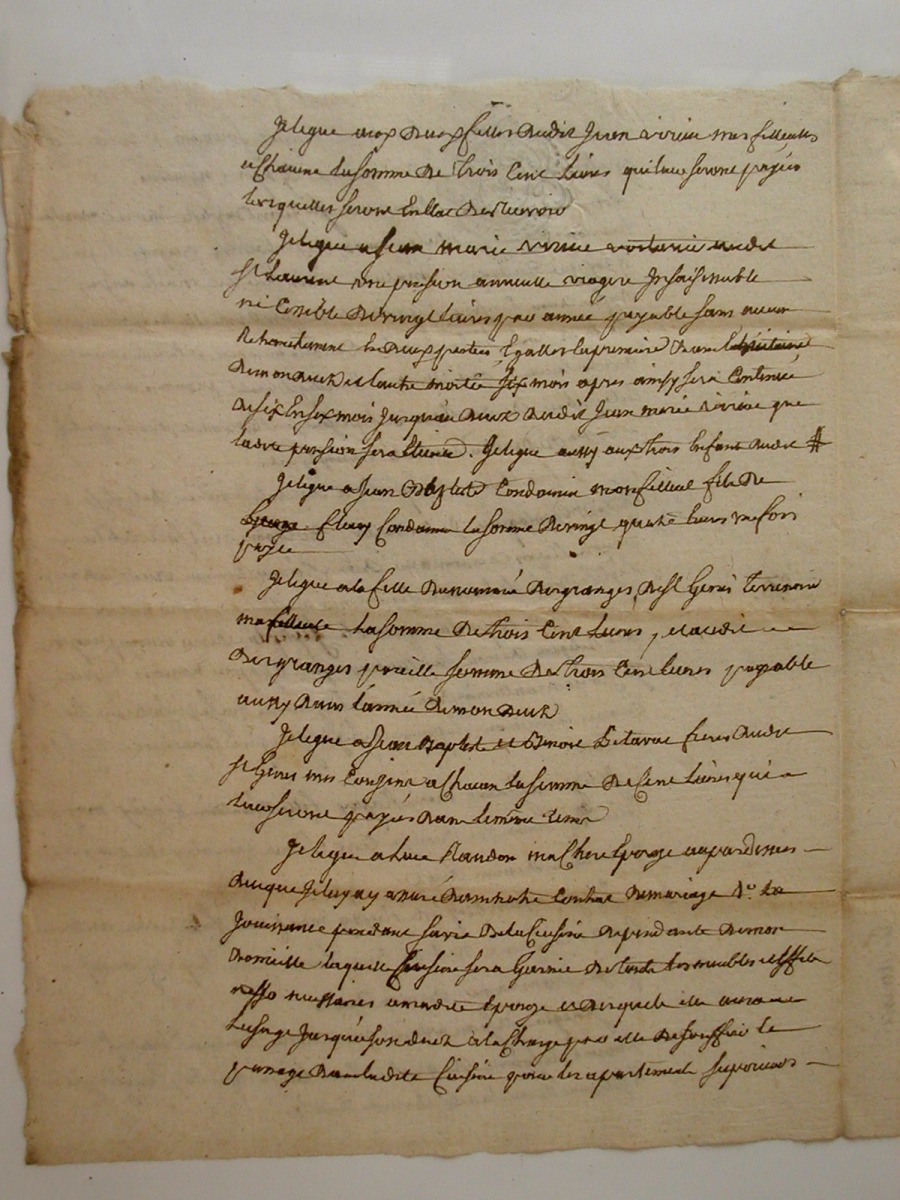 Je legue aux deux filles dudit Jean viriеu mes filleulles
a Chacune la somme de trois Cent Livres qui leur seront payées
lorsquelles seront En Etat de recevoir
Je legue a Jean marie viriеu dudit
St Laurent une pension annuelle viagere Insaisissable
ni Cessible de vingt livres par année payable sans aucun
Retranchement En deux parties Egalles la premiere dans
de mon deces et l'autre moitié six mois apres ainsy sera Continué
de six En six mois Jusqu'au deces dudit Jean marie viriеu que
ladite pension sera Eteinte. Je legue aussy aux trois Enfans dudit #
Je legue a Jean Baptiste Condamin mon filleul fils de
fleury Condamin la somme de vingt quatre livres une fois
payée
Je legue a la fille du nommé Desgranges de St Genis terrenoire
ma filleule la somme de trois Cent livres, et audit
Desgranges pareille somme de trois Cent livres payable
aussy dans l'année de mon deces
Je legue a Jean Baptiste et Benoit freres dudit
St Genis mes Cousins a Chacun la somme de Cent livres qui
leur seront payés dans le même tems
Je legue a ma Chere Epouze au pardessus
de ce que Je luy ay assuré dans notre Contrat de mariage 1º. la
Jouissance pendant sa vie de la Cuisine dependante de mon
domicille laquelle Cuisine sera Garnie de tous les meubles et Effets
necessaires a madite Epouze et desquels elle aura
L'usage Jusqu'a son deces a la Charge par elle de souffrir le
passage dans ladite Cuisine pour les apartements superieurs